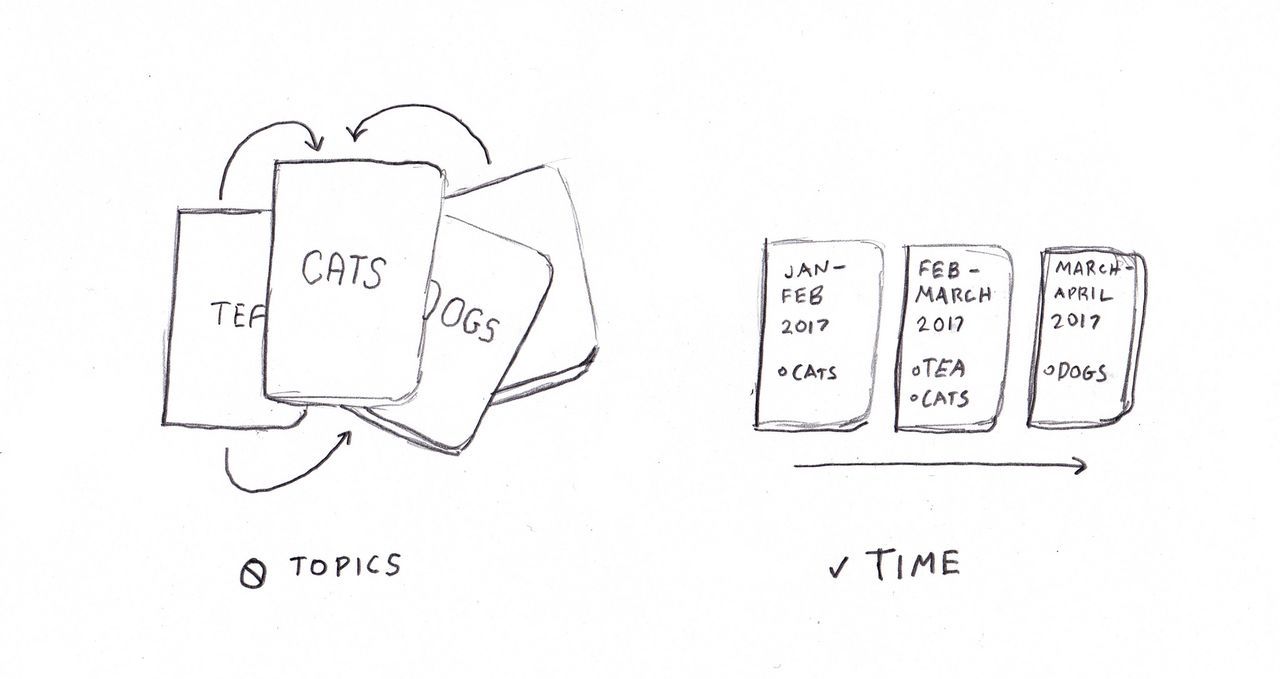 CATS
TEA
DOGS
TOPICS
JAN-
FEB
2017
CATS
FEB-
MARCH
2017
TEA
CATS
MARCH-
APRIL
2017
DOGS
✓ TIME